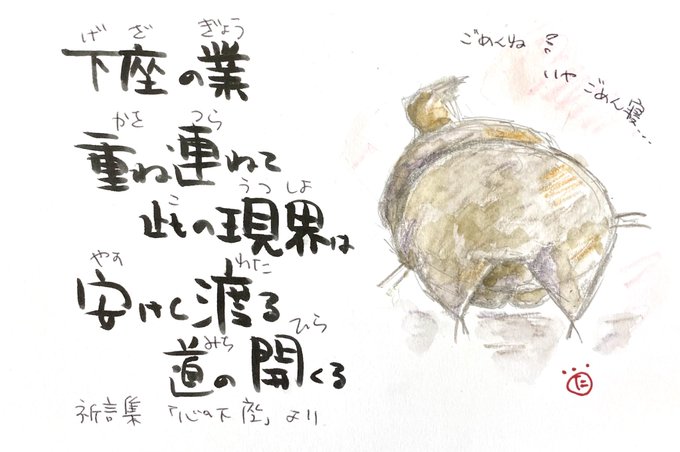 げ ざ ぎょう
下座の業
かさ つら
重ね連ねて
こ うつ しよ
此の現界は
やす わた
安けく渡る
みち ひら
道の開くる
祈言集 「心の下座」より
ごめんね?
いや ごめん寝…
た